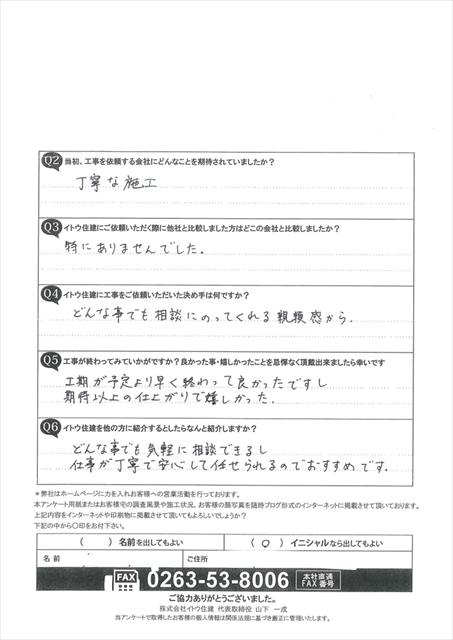 Q2 当初、工事を依頼する会社にどんなことを期待されていましたか?
丁寧な施工
Q3 イトウ住建にご依頼いただく際に他社と比較しました方はどこの会社と比較しましたか?
特にありませんでした。
Q4 イトウ住建に工事をご依頼いただいた決め手は何ですか?
どんな事でも相談にのってくれる親頼感から.
Q5 工事が終わってみていかがですか?良かった事・嬉しかったことを忌憚なく頂戴出来ましたら幸いです
工期が予定より早く終わって良かったですし
期待以上の仕上がりで嬉しかった.
Q6 イトウ住建を他の方に紹介するとしたらなんと紹介しますか?
どんな事でも気軽に相談できるし
仕事が丁寧で安心して任せられるのでおすすめです.
*弊社はホームページに力を入れお客様への営業活動を行っております。
本アンケート用紙またはお客様宅の調査風景や施工状況、お客様の顔写真を随時ブログ形式のインターネットに掲載させて頂いております。
上記内容をインターネットや印刷物に掲載させて頂いてもよろしいでしょうか?
下記の中から〇印をお付下さい。
( ) 名前を出してもよい ( 〇 ) イニシャルなら出してもよい
名前 ご住所
FAX 0263-53-8006 本社直通 FAX番号
ご協力ありがとうございました。
株式会社イトウ住建 代表取締役 山下 一成
当アンケートで取得したお客様の個人情報は関係法規に基づき厳正に管理いたします。